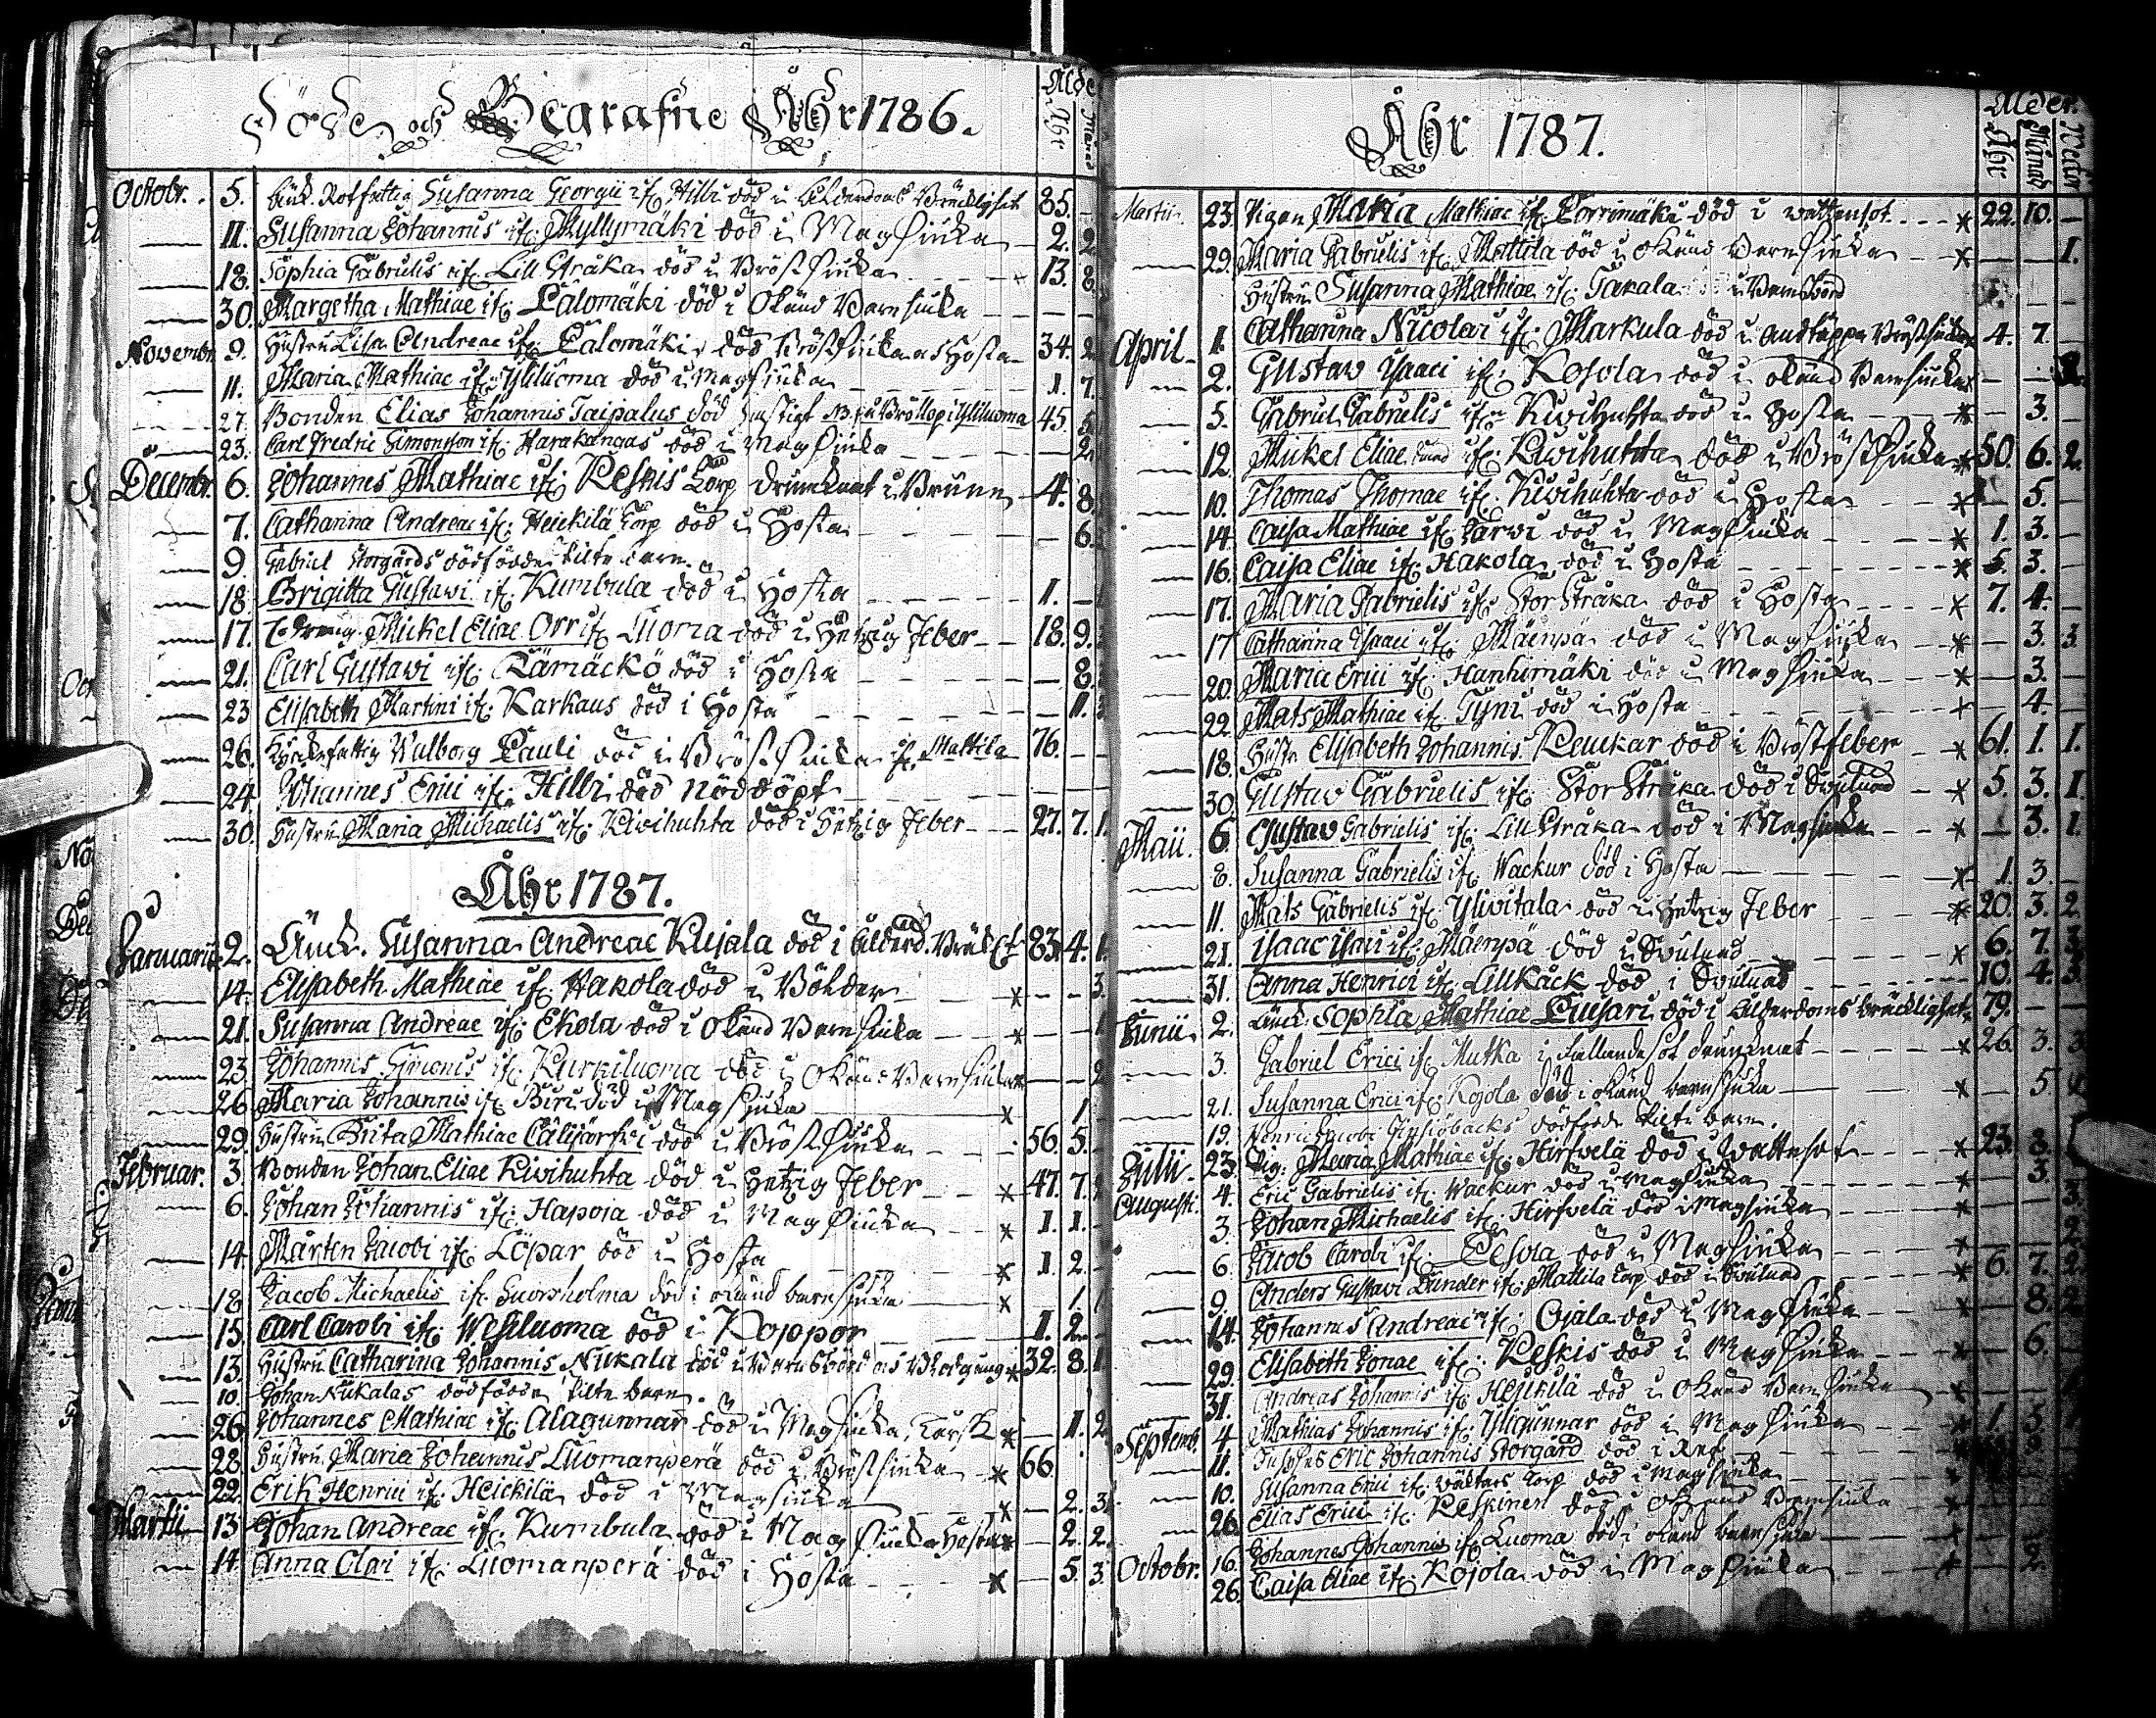 Döde och Begrafne Åhr 1786.
Ålde
Åhr Månad
Octobr. 5. Enk. Rotfattig Susanna Georgii if. Hilli död i Ålderdoms Bräcklighet 85. –
11. Susanna Johannis if. Myllymäki död i Magsiuka 2. 2
18. Sophia Gabrielis if. Lill Stråka död i Bröstsiuka 13. 8.
30. Margetha Mathiae if. Palomäki död i Okänd Barnsiuka
Novembr. 9. Hustru Lisa Andreae if. Palomäki död Bröstsiuka och Hosta 34. 2
11. Maria Mathiae if. Yliluoma död i Magsiuka 1. 7.
27. Bonden Elias Johannis Taipalus död hastigt NB. i Bröllop i Yliluoma 45. 5
23. Carl Fredric Simonsson if. Harakangas död i Magsiuka 2.
Decembr. 6. Johannes Mathiae if. Peskis Torp drunknat i Brunn 4. 8.
7. Catharina Andreae if. Heickilä Torp död i Hosta 6.
9. Gabriel Storgårds dödfödde Pilte barn.
18. Brigitta Gustawi if. Kumbula död i Hosta 1. –
17. Dreng. Mickel Eliae Orr if. Luoma död i Hetzig Feber 18. 9.
21. Carl Gustawi if. Rämäckö död i Hosta 8.
23. Elisabeth Martini if. Karhaus död i Hosta 11.
26. Kyrckofattig Walborg Pauli död i Bröstsiuka if. Mattila 76. –
24. Johannes Erici if. Hilli död nöddöpt
30. Hustru Maria Michaelis if. Kivihuhta död i Hetzig Feber 27. 7. 1.
Åhr 1787.
Januarii 2. Änck. Susanna Andreae Kujala död i Ålderd. Bräckl:t 83. 4. 1.
14. Elisabeth Mathiae if. Hakola död i Bölder × – – 3.
21. Susanna Andreae if. Ekola död i Okänd Barnsiuka × – – 1
23. Johannis Simonis if. Kurkiluoma död i Okänd Barnsiuka × – – 2
26. Maria Johannis if. Piru död i Magsiuka × 1.
29. Hustru Brita Mathiae Calijärfwi död i Bröstsiuka 56. 5.
Februar. 3. Bonden Johan Eliae Kiwihuhta död i Hetzig Feber × 47. 7.
6. Johan Johannis if. Hapoia död i Magsiuka × 1. 1.
14. Mårten Jacobi if. Löpar död i Hosta × 1. 2.
18. Jacob Michaelis if. Guorsholma död i okänd barnsiuka × 1.
15. Carl Carobi if. Westluoma död i Koppor 1. 2.
13. Hustru Catharina Johannis Nukala död i Barnsbörd och Blodgång × 32. 8. 1
10. Johan Nukalas dödfödde Pilte barn.
26. Johannes Mathiae if. Alagunnar död i Magsiuka, × – 1. 2
28. Hustru Maria Johannis Luomanperä död i Bröstsiuka × 66.
22. Erik Henrici if. Heickilä död i Magsiuka × – 2. 3.
Martii 13. Johan Andreae if. Kumbula död i Magsiuka Hosta × – 2. 2.
14. Anna Olai if. Luomanperä död i Hosta × – 5. 3.
Åhr 1787.
Ålder.
Åhr Månad Wecka
Martii 23. Pigan Maria Mathiae if. Porrimäki död i wattensot × 22. 10. –
29. Maria Gabrielis if. Mattila död i Okänd Barnsiuka × – – 1.
Hustru Susanna Mathiae if. Takala i Barnsbörd
April 1. Catharina Nicolai if. Markula död i Andtäppa Bröstsiuka × 4. 7.
2. Gustaw Isaaci if. Kojola död i okänd Barnsiuka ×
5. Gabriel Gabrielis if. Kiwihuhta död i Hosta × – 3.
12. Mickel Eliae if. Kiwihuhta död i Bröstsiuka × 50. 6. 2.
10. Thomas Thomae if. Kiwihuhta död i Hosta × – 5.
14. Caisa Mathiae if. Järwi död i Magsiuka × 1. 3.
16. Caisa Eliae if. Hakola död i Hosta × 5. 3.
17. Maria Gabrielis if. Stor Stråka död i Hosta × 7. 4.
17. Catharina Isaaci if. Mäenpä död i Magsiuka × – 3. 3
20. Maria Erici if. Hanhimäki död i Magsiuka × – 3.
22. Mats Mathiae if. Tyni död i Hosta × – 4.
18. Hustr. Elisabeth Johannis Peuckar död i Bröstfeber × 61. 1. 1.
30. Gustaw Gabrielis if. Stor Stråka död i Swulnad × 5. 3. 1
Maii. 6. Gustaw Gabrielis if. Lill Stråka död i Magsiuka × – 3. 1.
8. Susanna Gabrielis if. Wackur död i Hosta × 1. 3.
11. Mats Gabrielis if. Yliwitala död i Hetzig Feber × 20. 3. 2
21. Isaac Isaaci if. Mäenpä död i Swulnad × 6. 7. 3
31. Anna Henrici if. Lill Kåck död i Swulnad 10. 4. 3.
Junii. 2. Änck. Sophia Mathiae Luusari död i Ålderdoms bräcklighet 79. –
3. Gabriel Erici if. Mutka i Fallandesot drunknat × 26. 3. 3
21. Susanna Erici if. Kojola död i okänd barnsiuka × – 5.
19. Henric Jacobi dödfödde Pilte barn.
Julii. 23. Pig. Maria Mathiae if. Hirfwelä död i Wattusot × 23. 8.
Augusti. 4. Eric Gabrielis if. Wackur död i Magsiuka × – 3.
3. Johan Michaelis if. Hirfwelä död i Magsiuka × 3.
6. Jacob Carobi if. Pesola död i Magsiuka × 2
9. Anders Gustavi Dunder if. Mattila Torp död i Swulnad × 6. 7. 2
14. Johannes Andreae if. Ojala död i Magsiuka × – 8. 2
29. Elisabeth Jonae if. Peskis död i Magsiuka × – 6.
31. Andreas Johannis if. Heickilä död i Okänd Barnsiuka ×
Septemb. 4. Mathias Johannis if. Yligunnar död i Magsiuka × 1. 3.
11. Eric Johannis Storgård död i
10. Susanna Erici if. Wältars Torp död i Magsiuka
26. Elias Erici if. Peskinen död i okänd Barnsiuka ×
Octobr. 16. Johannes Johannis if. Luoma död i okänd barnsiuka
26. Caisa Eliae if. Kojola död i Magsiuka × – 2.